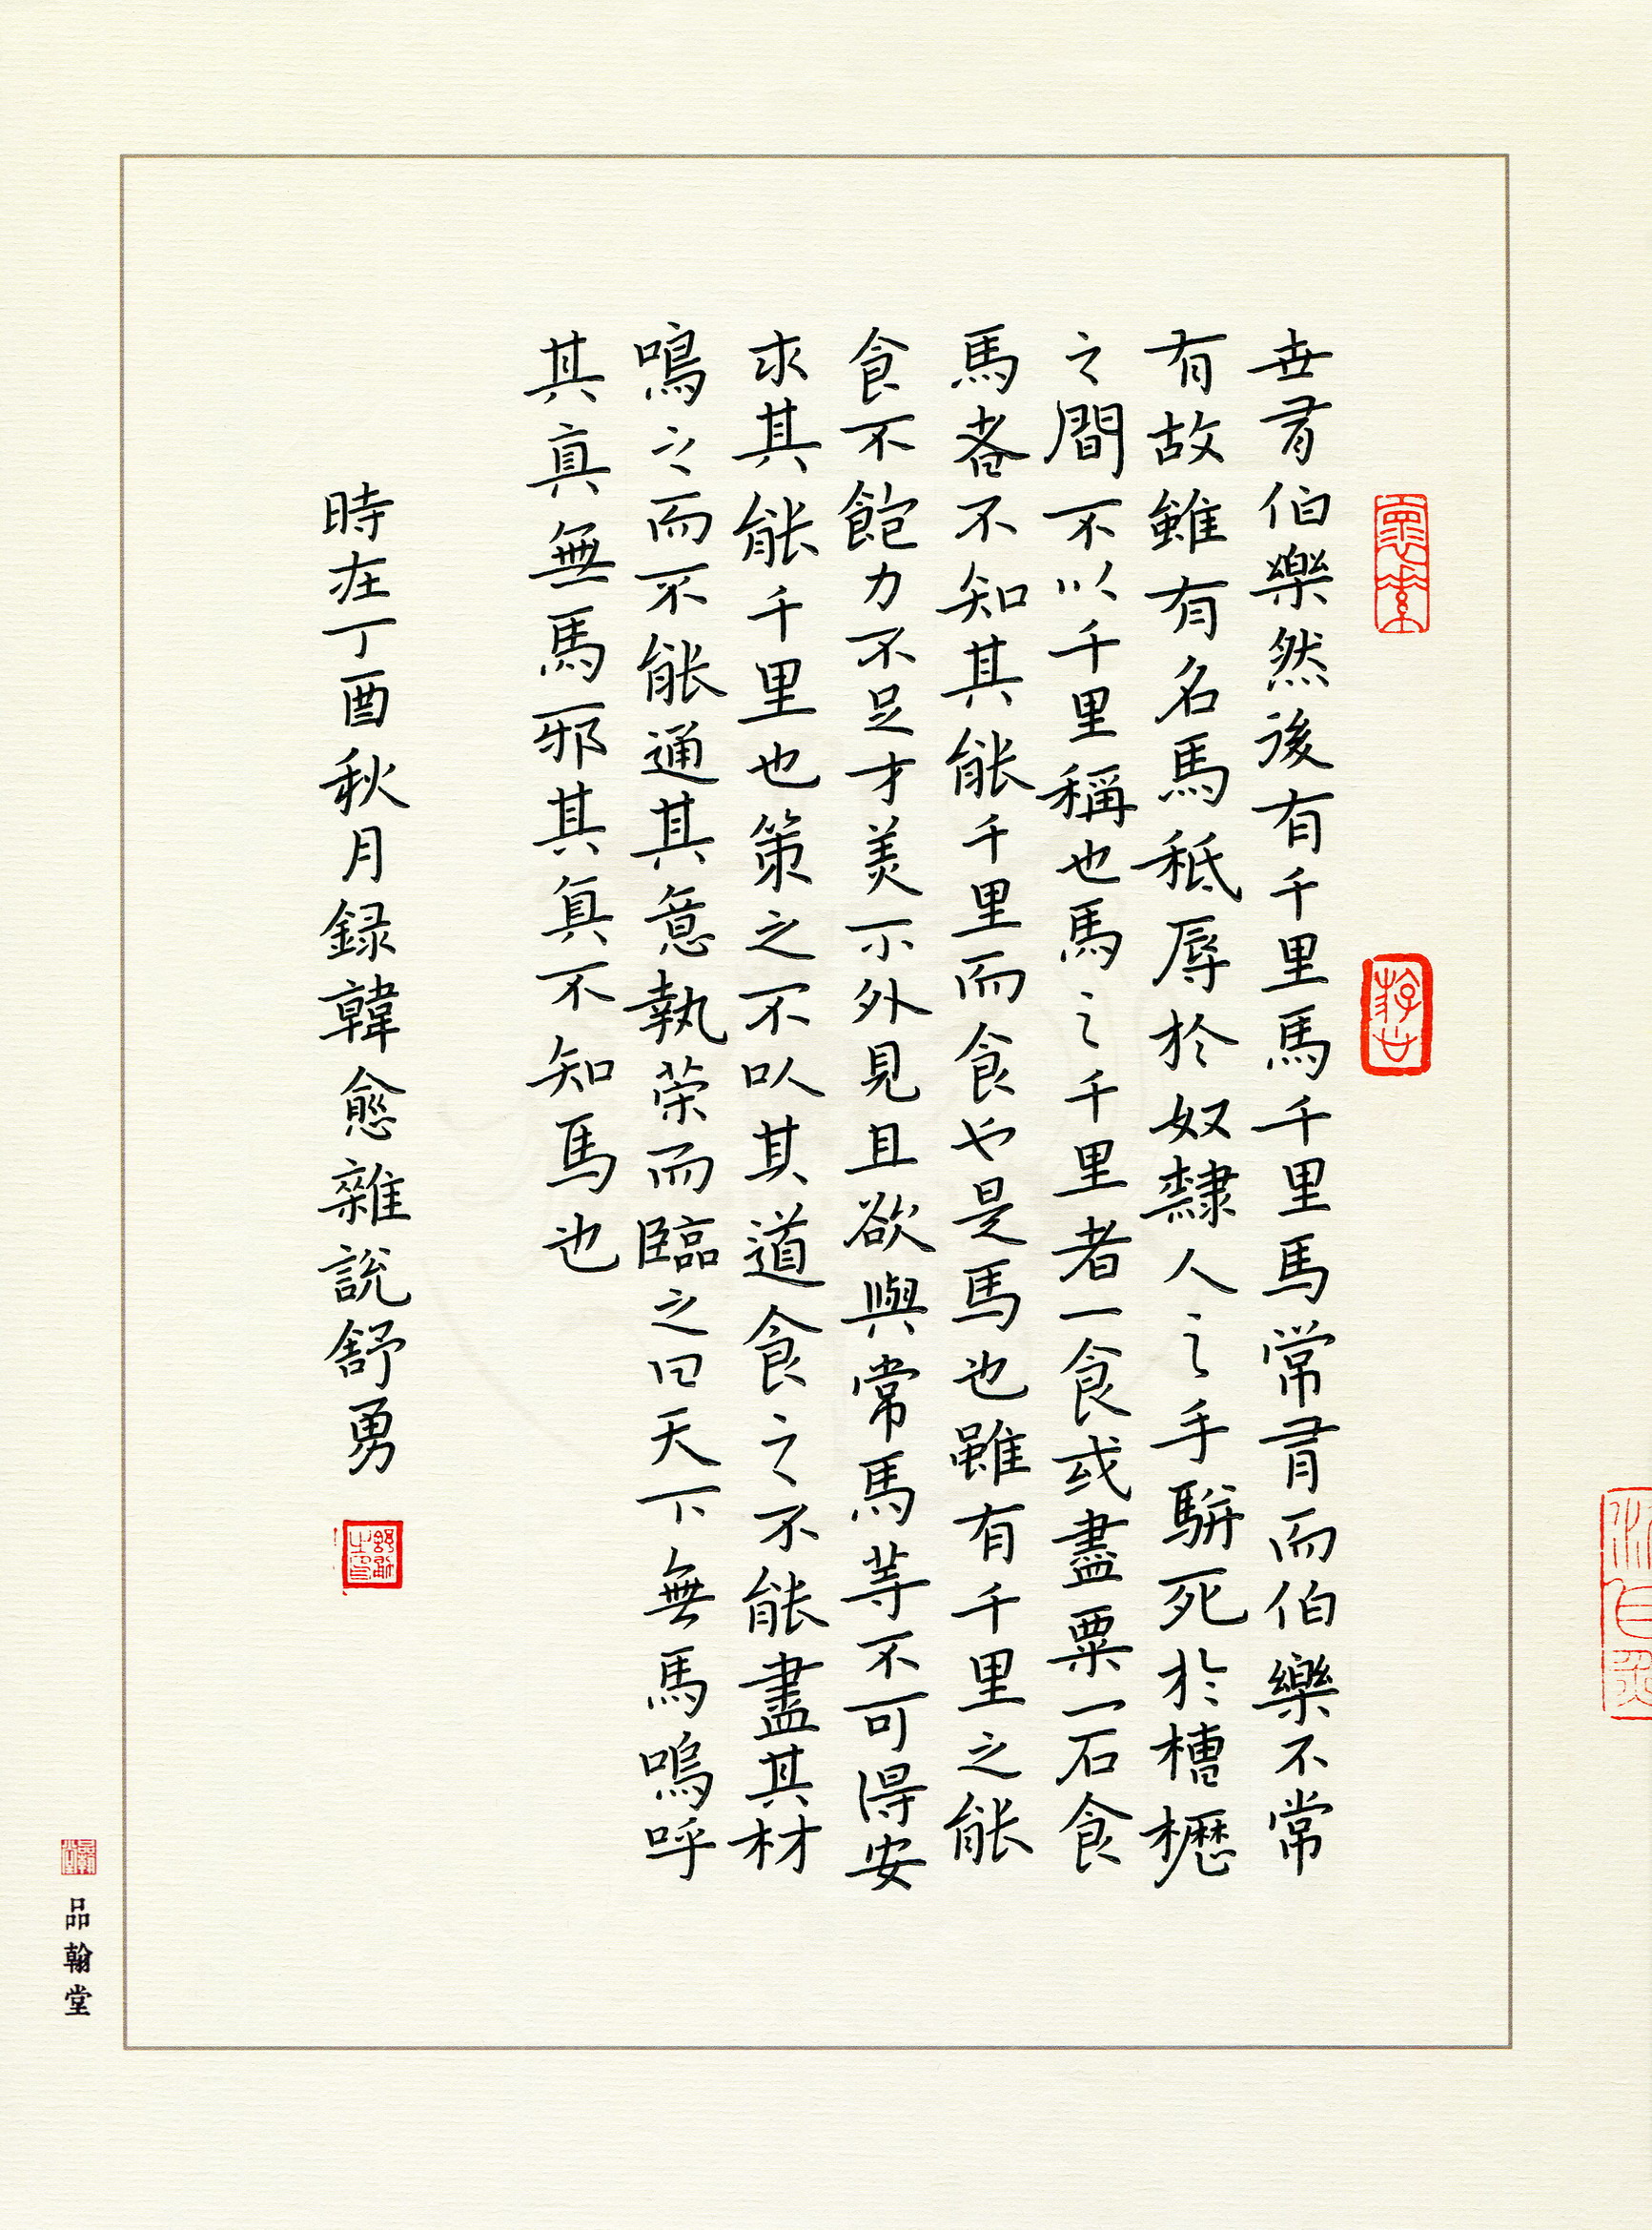 世有伯樂然後有千里馬千里馬常有而伯樂不常
有故雖有名馬秪辱於奴隸人之手駢死於槽櫪
之間不以千里稱也馬之千里者一食或盡粟一石食
馬者不知其能千里而食也是馬也雖有千里之能
食不飽力不足才美不外見且欲與常馬等不可得安
求其能千里也策之不以其道食之不能盡其材
鳴之而不能通其意執荣而臨之曰天下無馬嗚呼
其真無馬邪其真不知馬也
時在丁酉秋月録韓愈雜説舒勇
品翰堂